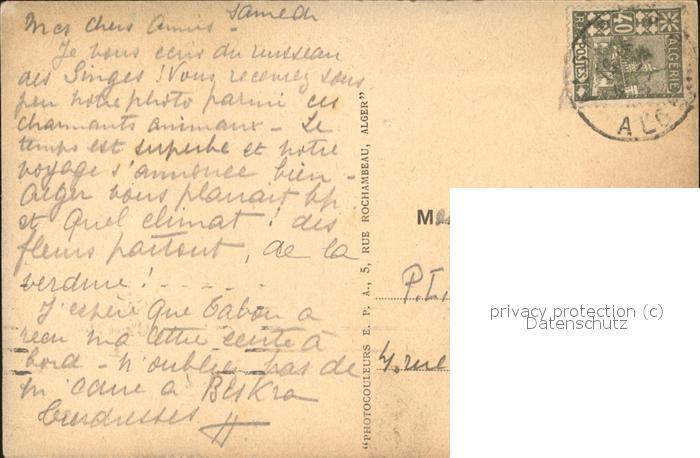 Samedi
Mes chers Amis -
Je vous écris du ruisseau
des Singes ! Vous recevrez sous
peu notre photo parmi ces
charmants animaux - Le
temps est superbe et notre
voyage s'annonce bien -
Alger vous plairait bp.
et Quel climat ! des
fleurs partout, de la
verdure ! - - - - -
J'espère que a
reçu ma lettre écrite à
bord - N'oubliez pas de
m'écrire à Biskra
Tendresses
"PHOTOCOULEURS E. P. A., 5, RUE ROCHAMBEAU, ALGER"
40
ALGERIE
POSTES
R F
ALG
M
P.L.
4, rue
privacy protection (c)
Datenschutz